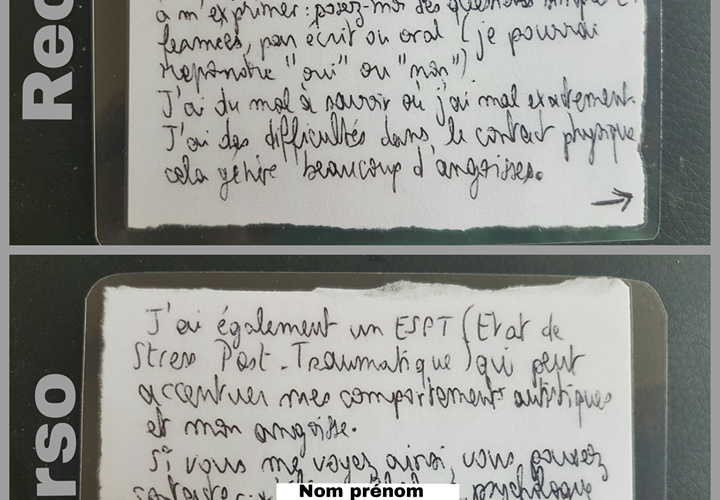 Rec
à m'exprimer : posez-moi des questions simples et
fermées, par écrit ou oral (je pourrai
répondre "oui" ou "non")
J'ai du mal à savoir où j'ai mal exactement.
J'ai des difficultés dans le contact physique
cela génère beaucoup d'angoisses.
→
rso
J'ai également un ESPT (Etat de
Stress Post-Traumatique) qui peut
accentuer mes comportements autistiques
et mon angoisse.
Si vous me voyez ainsi, vous pouvez
psychologue
Nom prénom